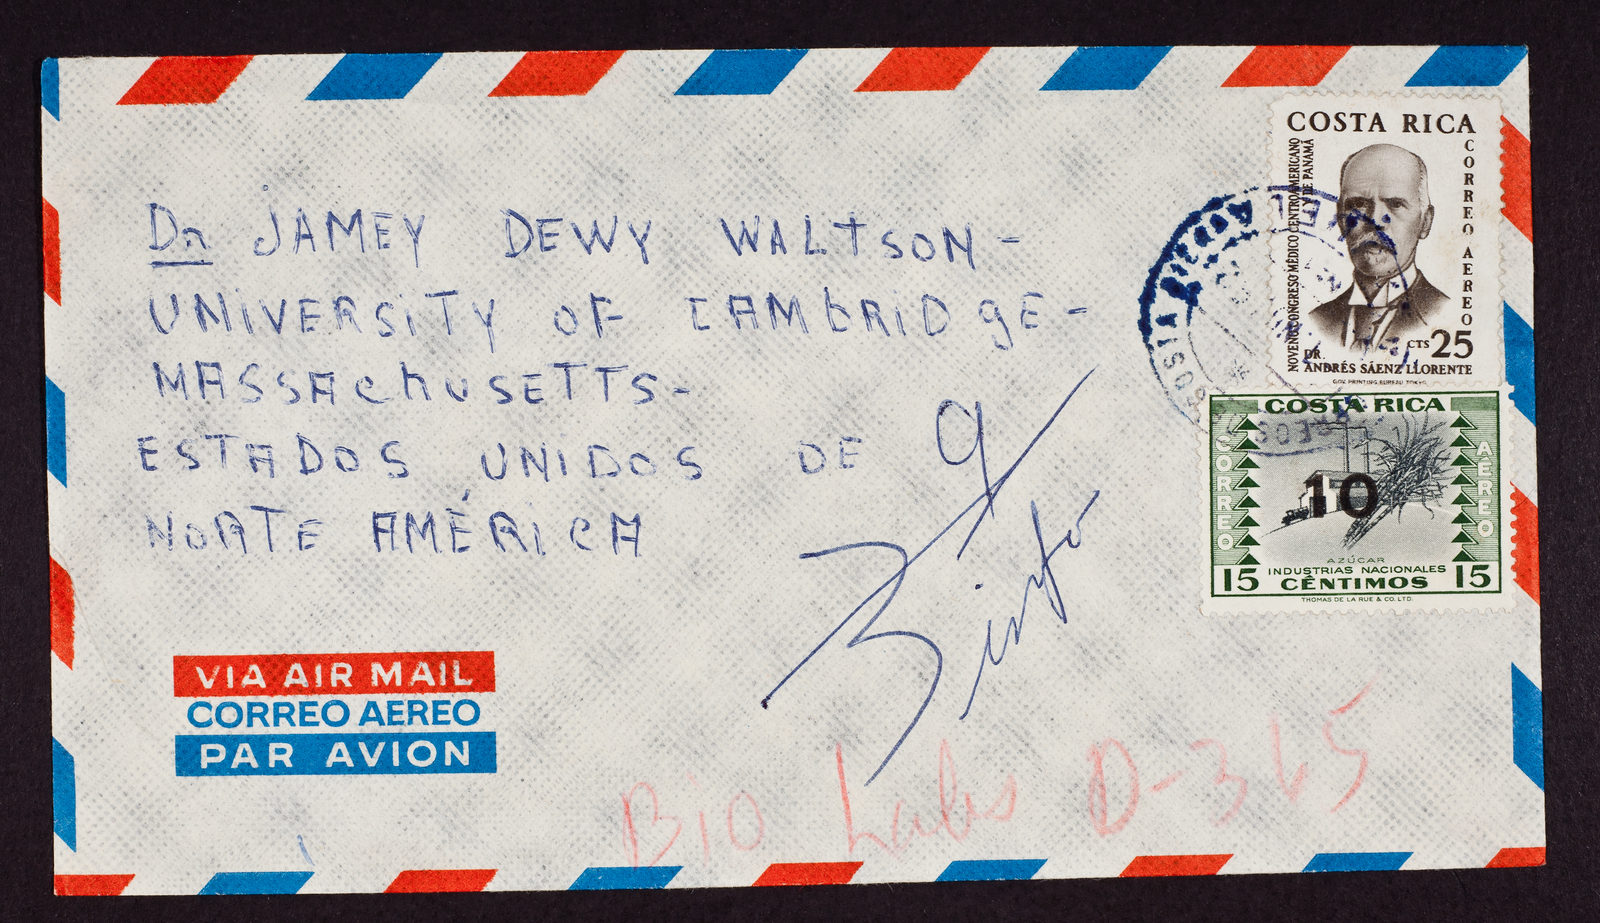 Dr JAMEY DEWY WALTSON-
UNIVERSITY OF CAMbRIDgE-
MASSAChUSETTS-
ESTADOS UNIDOS DE
NORTE AMÉRICA
VIA AIR MAIL
CORREO AEREO
PAR AVION
Bio Labs D-365
COSTA RICA
CORREO AEREO
NOVENO CONGRESO MÉDICO CENTROAMERICANO
Y DE PANAMÁ
CTS 25
DR.
ANDRÉS SÁENZ LLORENTE
GOV. PRINTING BUREAU TOKYO
COSTA RICA
CORREO
AEREO
10
AZÚCAR
INDUSTRIAS NACIONALES
15 CÉNTIMOS 15
THOMAS DE LA RUE & CO. LTD.